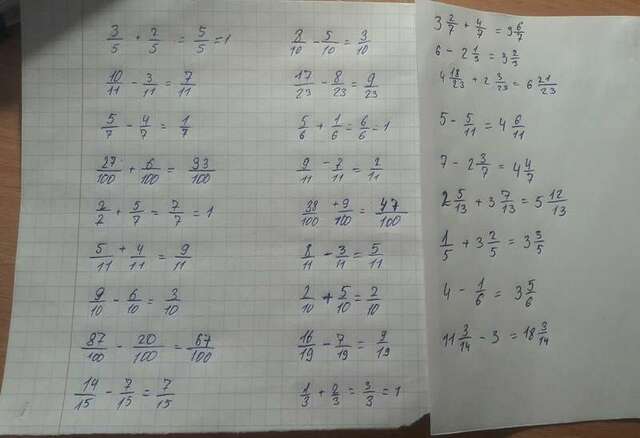 3/5 + 2/5 = 5/5 = 1
10/11 - 3/11 = 7/11
5/7 - 4/7 = 1/7
27/100 + 6/100 = 93/100
2/2 + 5/7 = 7/7 = 1
5/11 + 4/11 = 9/11
9/10 - 6/10 = 3/10
87/100 - 20/100 = 67/100
14/15 - 7/15 = 7/15
8/10 - 5/10 = 3/10
17/23 - 8/23 = 9/23
5/6 + 1/6 = 6/6 = 1
9/11 - 7/11 = 2/11
38/100 + 9/100 = 47/100
8/11 - 3/11 = 5/11
2/10 + 5/10 = 7/10
16/19 - 7/19 = 9/19
1/3 + 2/3 = 3/3 = 1
3 2/7 + 4/7 = 3 6/7
6 - 2 1/3 = 3 2/3
4 18/23 + 2 3/23 = 6 21/23
5 - 5/11 = 4 6/11
7 - 2 3/7 = 4 4/7
2 5/13 + 3 7/13 = 5 12/13
1/5 + 3 2/5 = 3 3/5
4 - 1/6 = 3 5/6
11 3/14 - 3 = 18 3/14